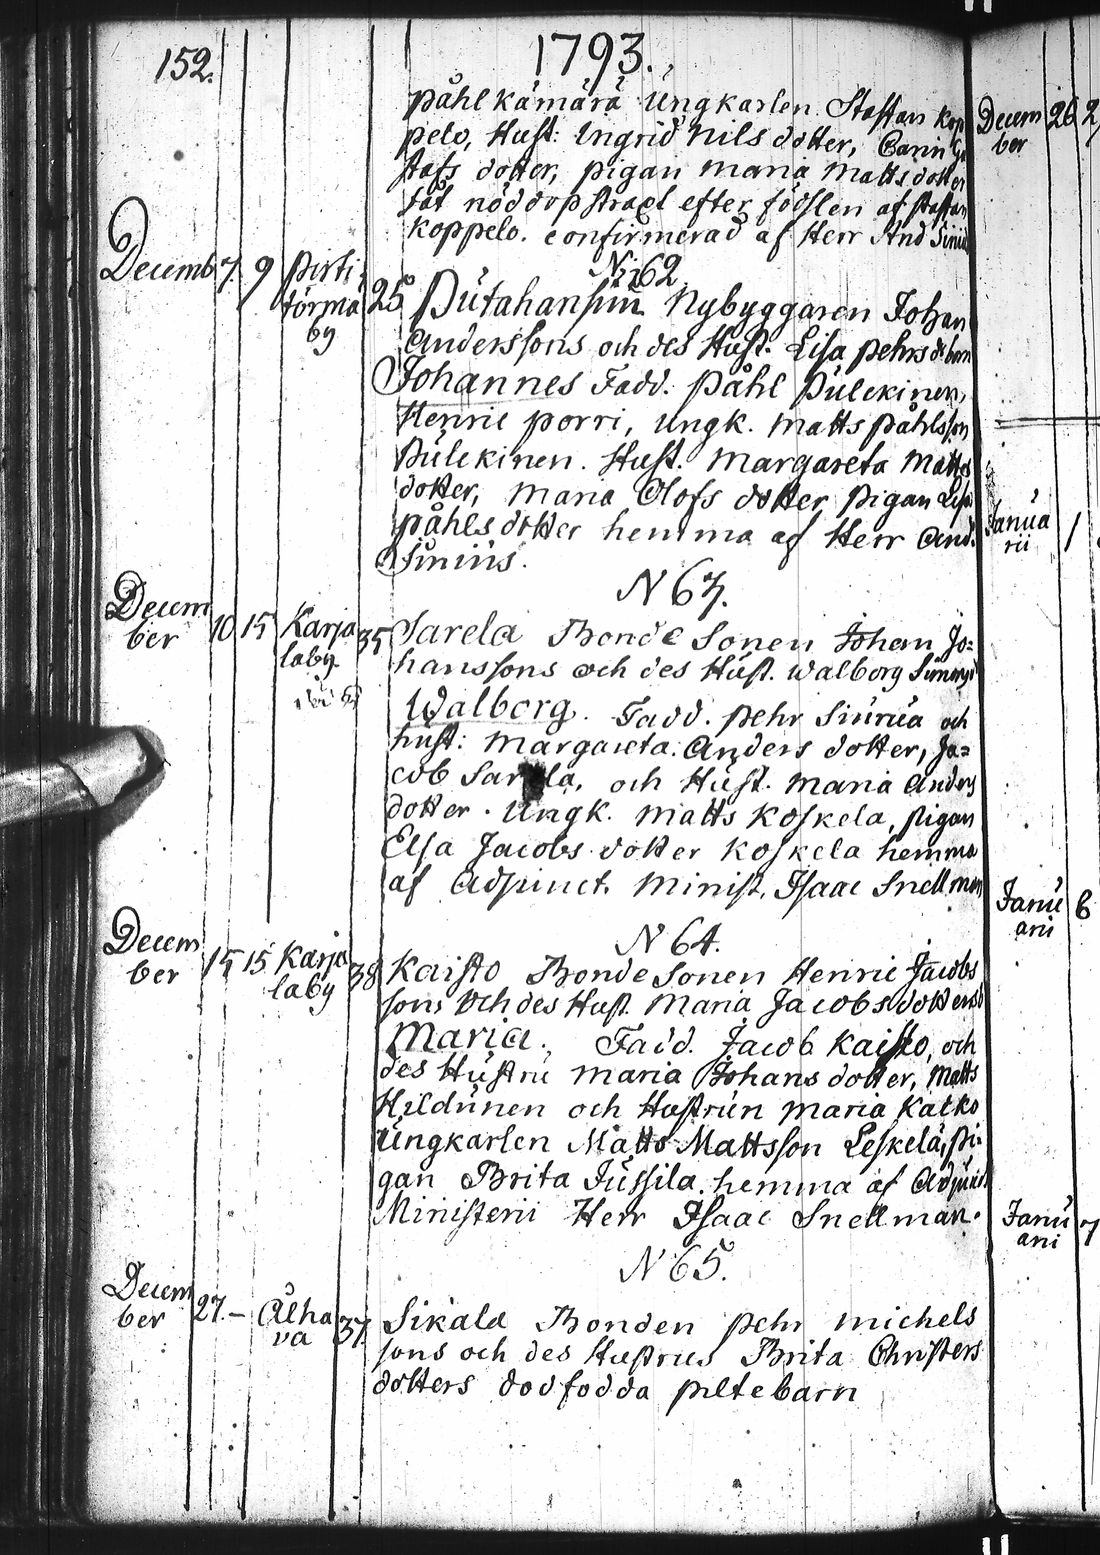 152.
1793.
påhl kämärä Ungkarlen Staffan Kop
pelo, Hust: Ingrid Nils dotter, Carin
stafs dotter, pigan Maria Matts dotter
nöddop straxt efter födslen af staffan
Koppelo. confirmerad af Herr And Sinius
N: 62
Decemb 7. 9 pirti
törmä
by
25 Putahansun Nybyggaren Johan
Anderssons och des Hust. Lisa pehrs d: barn
Johannes Fadd. påhl Pulckinen,
Henric porri, Ungk. Matts påhlsson
Pulckinen. Hust. Margareta Matts
dotter, Maria Olofs dotter pigan Lisa
påhls dotter hemma af Herr And.
Sinius.
N 63.
Decem
ber 10 15 Karja
laby
35 Sarela Bonde Sonen Johan Jo=
hanssons och des Hust. Walborg
Walborg. Fadd. pehr Siurua och
hust: Margareta Anders dotter, Ja=
cob Sarela, och Hust. Maria Anders
dotter. Ungk. Matts Koskela, pigan
Elsa Jacobs dotter Koskela hemma
af Adjunct. Minist. Isaac Snellman
N 64.
Decem
ber 15 15 Karja
laby
38 Kaisto Bonde Sonen Henric Jacobs
sons Och des Hust. Maria Jacobs dotters
Maria. Fadd. Jacob Kaisto, och
des Hustru Maria Johans dotter, Matts
Hildunen och Hustrun Maria Kalko
Ungkarlen Matts Mattsson Leskelä, pi=
gan Brita Jussila. hemma af Adjunct
Ministerii Herr Isaac Snellman.
N 65.
Decem
ber 27. – Alha
va
37. Sikala Bonden pehr Michels
sons och des Hustrus Brita Christers
dotters dodfodda piltebarn
Decem
ber 26 2
Janua
rii 1
Janu
arii 6
Janu
arii 7